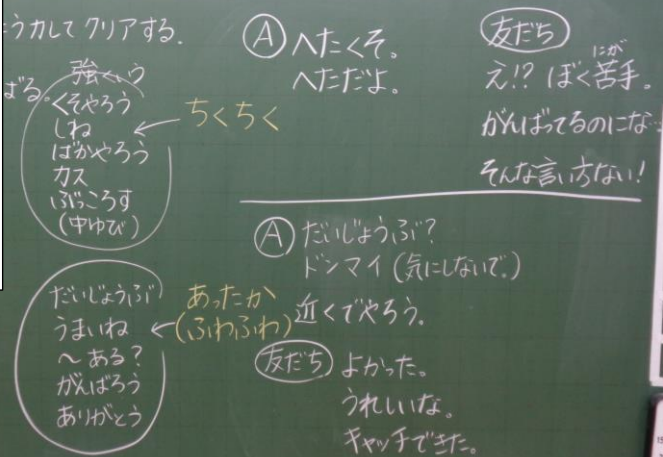 力してクリアする。
ばる。
強くいう
くそやろう
しね
ばかやろう
カス
ぶっころす
(中ゆび)
ちくちく
だいじょうぶ
うまいね
～ある?
がんばろう
ありがとう
あったか
(ふわふわ)
Ⓐ へたくそ。
へただよ。
友だち
え!? ぼく苦手。
にが
がんばってるのにな…
そんな言い方ない!
Ⓐ だいじょうぶ?
ドンマイ (気にしないで。)
近くでやろう。
友だち よかった。
うれしいな。
キャッチできた。